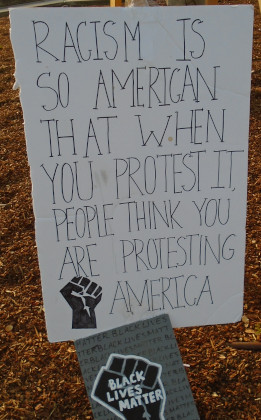 RACISM IS
SO AMERICAN
THAT WHEN
YOU PROTEST IT,
PEOPLE THINK YOU
ARE PROTESTING
AMERICA
BLACK
LIVES
MATTER